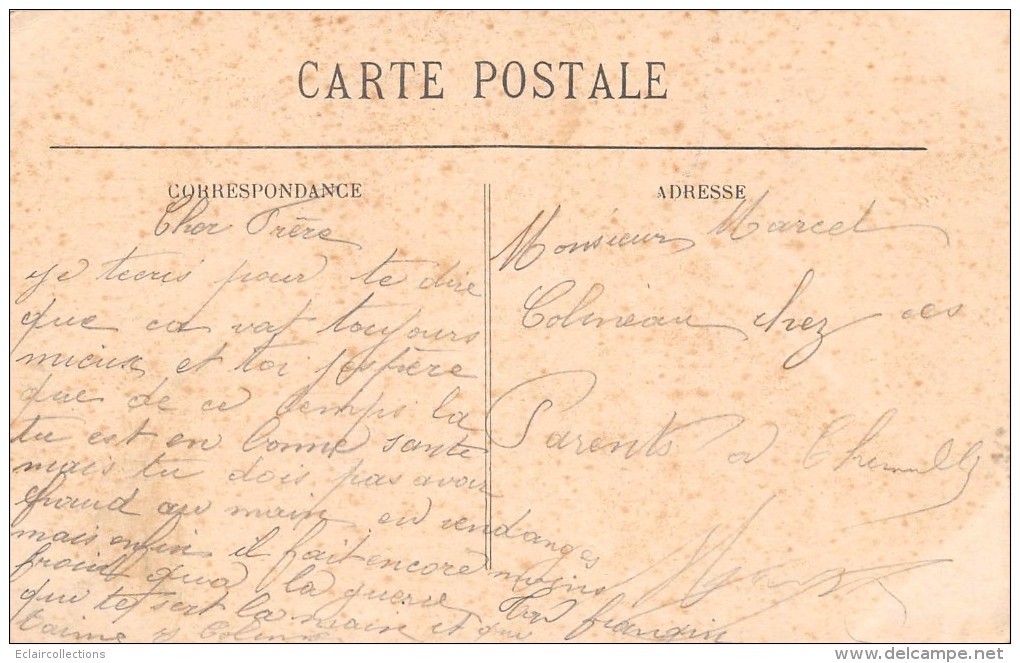 CARTE POSTALE
CORRESPONDANCE
Cher Frère
je tecris pour te dire
que ca vat toujours
mieux et toi jespère
que de ce temps la
tu est en bonne sante
mais tu dois pas avoir
chaud au main en vendanges
mais enfin il fait encore moins
froid qua la guerre
que te sert la main et qui
t'aime
Ton frangin
ADRESSE
Monsieur Marcel
Colineau chez ces
Parents a
Eclaircollections
delcampe.net